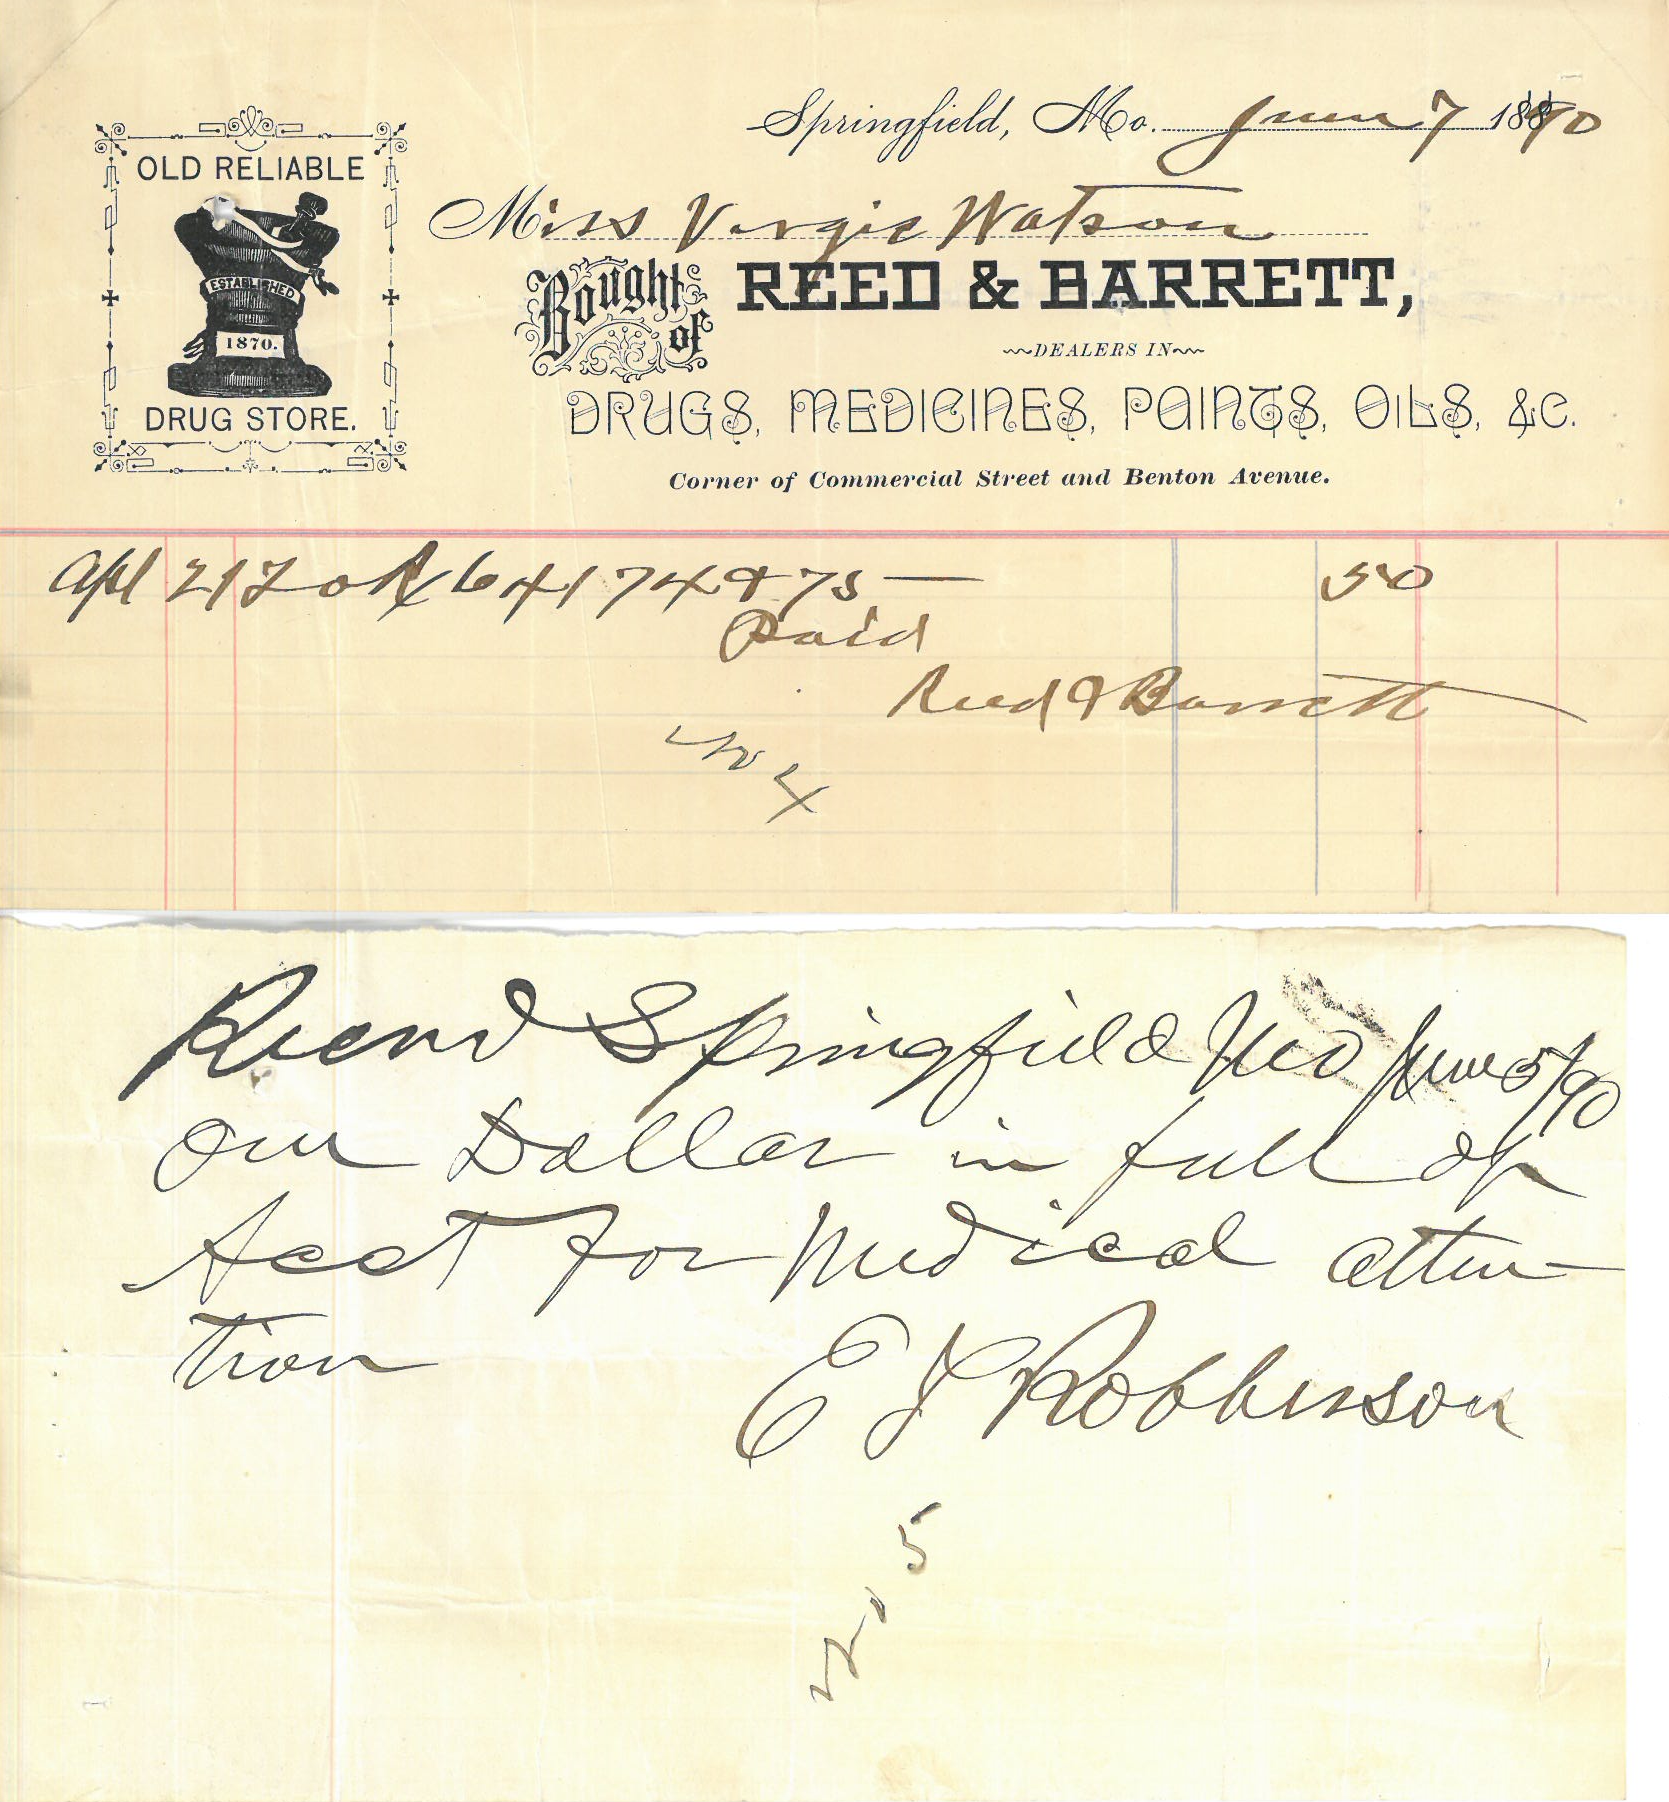 Springfield, Mo. June 7 1890
OLD RELIABLE
ESTABLISHED
1870.
DRUG STORE.
Miss Virgie Watson
Bought of REED & BARRETT,
DEALERS IN
DRUGS, MEDICINES, PAINTS, OILS, &C.
Corner of Commercial Street and Benton Avenue.
Apl 21 To Rx 64174 & 75 — 50
Paid
Reed & Barrett
No 4
Recevd Springfield Mo June 5/90
One Dollar in full of
Acct for Medical atten
tion
E J Robberson
No 5